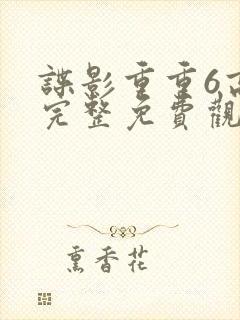 諜影重重6高
完整免費觀
熏香花